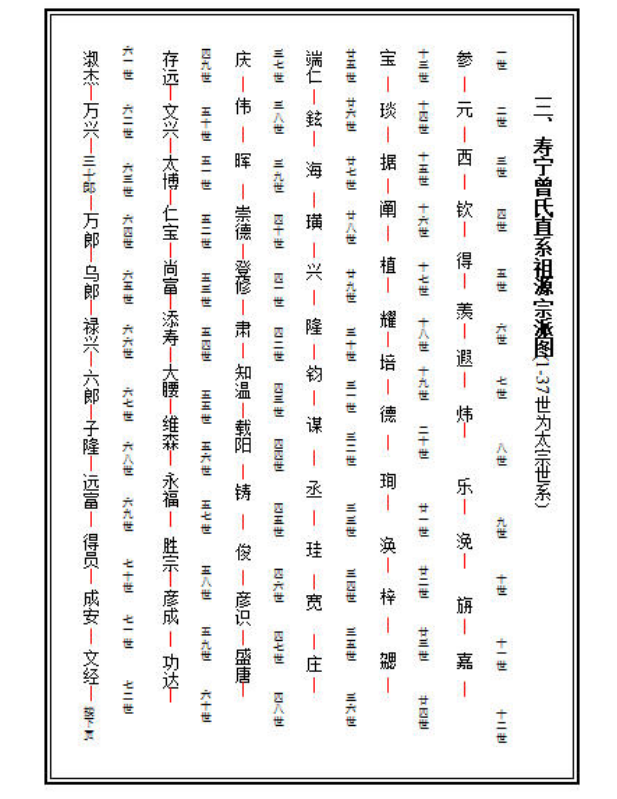 三、寿宁曾氏直系祖源宗派图(1-37世为太宗世系)
一世 二世 三世 四世 五世 六世 七世 八世 九世 十世 十一世 十二世
参 元 西 钦 得 羡 遐 炜 乐 浼 旃 嘉
十三世 十四世 十五世 十六世 十七世 十八世 十九世 二十世 廿一世 廿二世 廿三世 廿四世
宝 琰 据 阐 植 耀 培 德 珣 涣 梓 勰
廿五世 廿六世 廿七世 廿八世 廿九世 三十世 三一世 三二世 三三世 三四世 三五世 三六世
端仁 鉉 海 璜 兴 隆 钧 谋 丞 珪 宽 庄
三七世 三八世 三九世 四十世 四一世 四二世 四三世 四四世 四五世 四六世 四七世 四八世
庆 伟 晖 崇德 登修 肃 知温 载阳 铸 俊 彦识 盛唐
四九世 五十世 五一世 五二世 五三世 五四世 五五世 五六世 五七世 五八世 五九世 六十世
存远 文兴 太博 仁宝 尚富 添寿 大腰 维森 永福 胜宗 彦成 功达
六一世 六二世 六三世 六四世 六五世 六六世 六七世 六八世 六九世 七十世 七一世 七二世
淑杰 万兴 三十郎 万郎 乌郎 禄兴 六郎 子隆 远富 得员 成安 文经 接下页